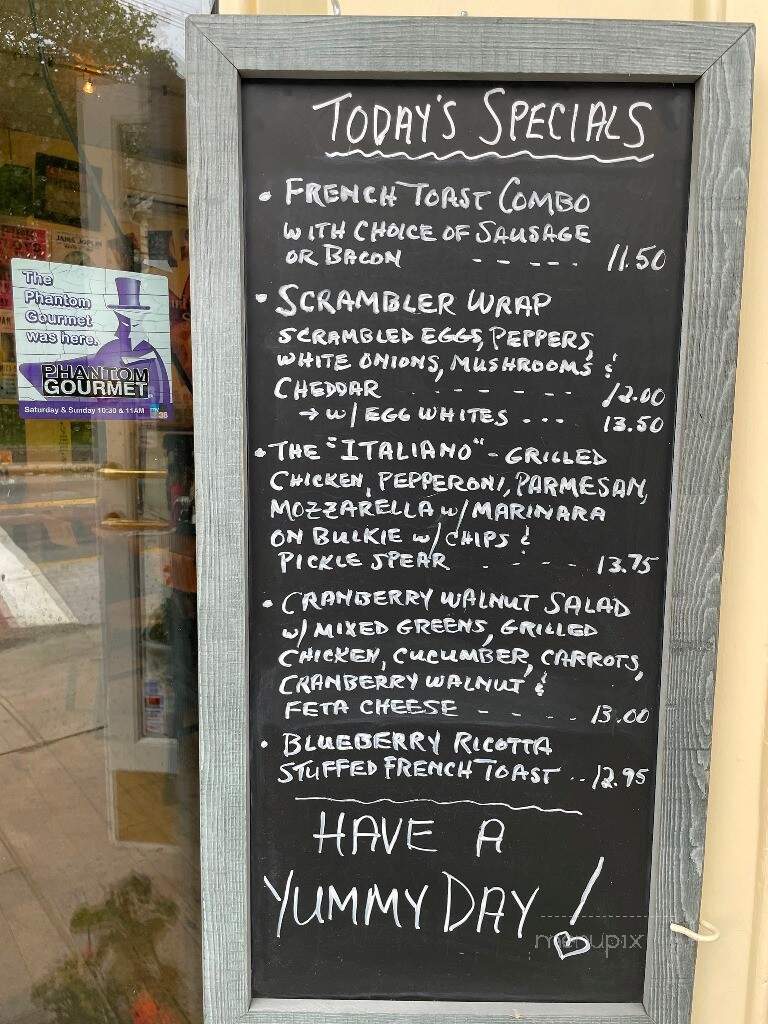 TODAY'S SPECIALS
• FRENCH TOAST COMBO
WITH CHOICE OF SAUSAGE
OR BACON - - - - - 11.50
• SCRAMBLER WRAP
SCRAMBLED EGGS, PEPPERS,
WHITE ONIONS, MUSHROOMS &
CHEDDAR - - - - - - - 12.00
→ W/ EGG WHITES - - - 13.50
• THE "ITALIANO" - GRILLED
CHICKEN, PEPPERONI, PARMESAN,
MOZZARELLA W/ MARINARA
ON BULKIE W/ CHIPS &
PICKLE SPEAR - - - - 13.75
• CRANBERRY WALNUT SALAD
W/ MIXED GREENS, GRILLED
CHICKEN, CUCUMBER, CARROTS,
CRANBERRY WALNUT &
FETA CHEESE - - - - 13.00
• BLUEBERRY RICOTTA
STUFFED FRENCH TOAST .. 12.95
HAVE A
YUMMY DAY!
menupix
The
Phantom
Gourmet
was here.
PHANTOM
GOURMET
Saturday & Sunday 10:30 & 11AM
JANIS JOPLIN